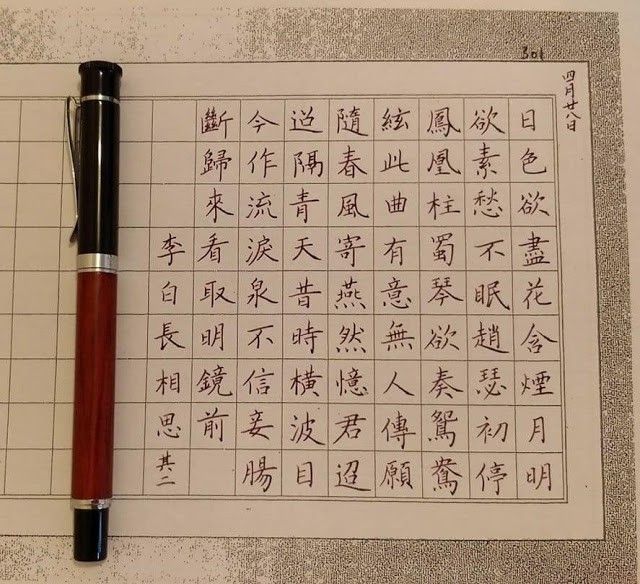 301
四月廿八日
日色欲盡花含煙月明
欲素愁不眠趙瑟初停
鳳凰柱蜀琴欲奏鴛鴦
絃此曲有意無人傳願
隨春風寄燕然憶君迢
迢隔青天昔時橫波目
今作流淚泉不信妾腸
斷歸來看取明鏡前
李白長相思其二